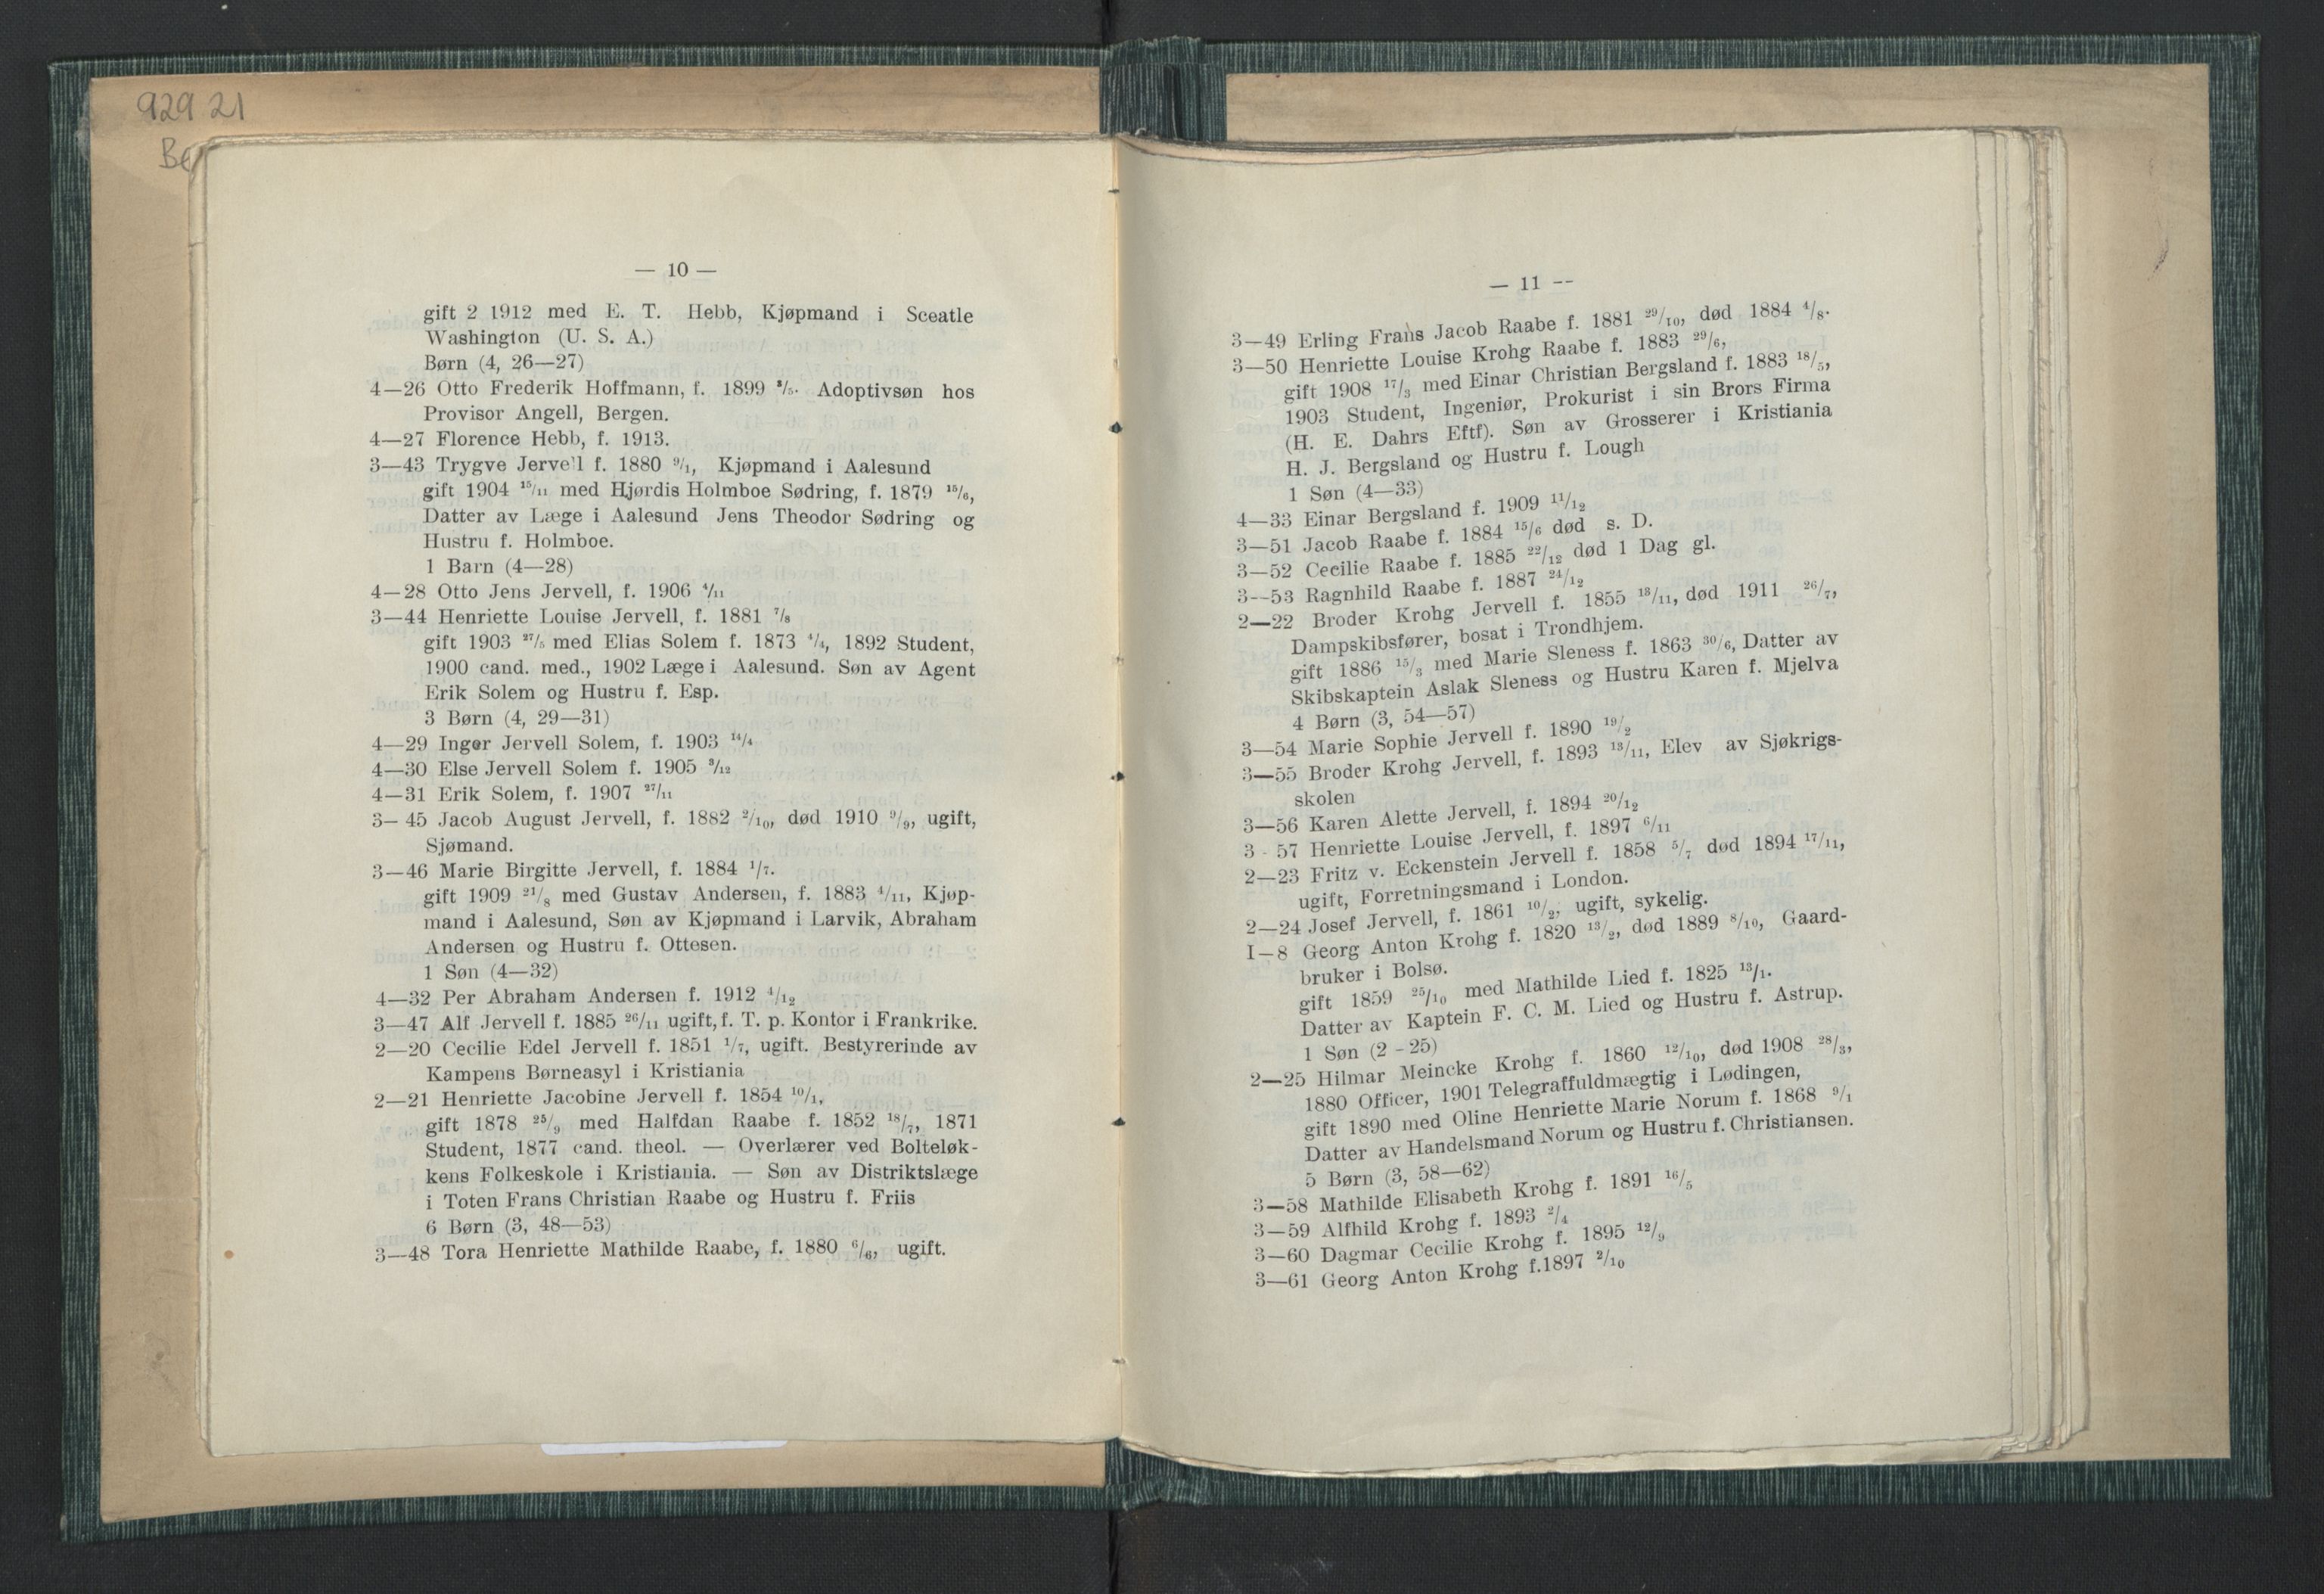 929 21
— 10 —
gift 2 1912 med E. T. Hebb, Kjøpmand i Sceatle
Washington (U. S. A.)
Børn (4, 26—27)
4—26 Otto Frederik Hoffmann, f. 1899 ⁸/₅. Adoptivsøn hos
Provisor Angell, Bergen.
4—27 Florence Hebb, f. 1913.
3—43 Trygve Jervell f. 1880 ⁹/₁, Kjøpmand i Aalesund
gift 1904 ¹⁵/₁₁ med Hjørdis Holmboe Sødring, f. 1879 ¹⁵/₆,
Datter av Læge i Aalesund Jens Theodor Sødring og
Hustru f. Holmboe.
1 Barn (4—28)
4—28 Otto Jens Jervell, f. 1906 ⁴/₁₁
3—44 Henriette Louise Jervell, f. 1881 ⁷/₈
gift 1903 ²⁷/₅ med Elias Solem f. 1873 ⁴/₄, 1892 Student,
1900 cand. med., 1902 Læge i Aalesund. Søn av Agent
Erik Solem og Hustru f. Esp.
3 Børn (4, 29—31)
4—29 Inger Jervell Solem, f. 1903 ¹⁴/₄
4—30 Else Jervell Solem f. 1905 ³/₁₂
4—31 Erik Solem, f. 1907 ²⁷/₁₁
3—45 Jacob August Jervell, f. 1882 ²/₁₀, død 1910 ⁹/₉, ugift,
Sjømand.
3—46 Marie Birgitte Jervell, f. 1884 ¹/₇.
gift 1909 ²¹/₈ med Gustav Andersen, f. 1883 ⁴/₁₁, Kjøp-
mand i Aalesund, Søn av Kjøpmand i Larvik, Abraham
Andersen og Hustru f. Ottesen.
1 Søn (4—32)
4—32 Per Abraham Andersen f. 1912 ⁴/₁₂
3—47 Alf Jervell f. 1885 ²⁶/₁₁ ugift, f. T. p. Kontor i Frankrike.
2—20 Cecilie Edel Jervell f. 1851 ¹/₇, ugift. Bestyrerinde av
Kampens Børneasyl i Kristiania
2—21 Henriette Jacobine Jervell f. 1854 ¹⁰/₁,
gift 1878 ²⁵/₉ med Halfdan Raabe f. 1852 ¹⁸/₇, 1871
Student, 1877 cand. theol. — Overlærer ved Bolteløk-
kens Folkeskole i Kristiania. — Søn av Distriktslæge
i Toten Frans Christian Raabe og Hustru f. Friis
6 Børn (3, 48—53)
3—48 Tora Henriette Mathilde Raabe, f. 1880 ⁶/₆, ugift.
— 11 --
3—49 Erling Frans Jacob Raabe f. 1881 ²⁹/₁₀, død 1884 ⁴/₈.
3—50 Henriette Louise Krohg Raabe f. 1883 ²⁹/₆,
gift 1908 ¹⁷/₃ med Einar Christian Bergsland f. 1883 ¹⁸/₅,
1903 Student, Ingeniør, Prokurist i sin Brors Firma
(H. E. Dahrs Eftf). Søn av Grosserer i Kristiania
H. J. Bergsland og Hustru f. Lough
1 Søn (4—33)
4—33 Einar Bergsland f. 1909 ¹¹/₁₂
3—51 Jacob Raabe f. 1884 ¹⁵/₆ død s. D.
3—52 Cecilie Raabe f. 1885 ²²/₁₂ død 1 Dag gl.
3--53 Ragnhild Raabe f. 1887 ²⁴/₁₂
2—22 Broder Krohg Jervell f. 1855 ¹³/₁₁, død 1911 ²⁶/₇,
Dampskibsfører, bosat i Trondhjem.
gift 1886 ¹⁵/₃ med Marie Sleness f. 1863 ³⁰/₆, Datter av
Skibskaptein Aslak Sleness og Hustru Karen f. Mjelva
4 Børn (3, 54—57)
3—54 Marie Sophie Jervell f. 1890 ¹⁹/₂
3—55 Broder Krohg Jervell, f. 1893 ¹³/₁₁, Elev av Sjøkrigs-
skolen
3—56 Karen Alette Jervell, f. 1894 ²⁰/₁₂
3 - 57 Henriette Louise Jervell, f. 1897 ⁶/₁₁
2—23 Fritz v. Eckenstein Jervell f. 1858 ⁵/₇ død 1894 ¹⁷/₁₁,
ugift, Forretningsmand i London.
2—24 Josef Jervell, f. 1861 ¹⁰/₂, ugift, sykelig.
I—8 Georg Anton Krohg f. 1820 ¹³/₂, død 1889 ⁸/₁₀, Gaard-
bruker i Bolsø.
gift 1859 ²⁵/₁₀ med Mathilde Lied f. 1825 ¹³/₁.
Datter av Kaptein F. C. M. Lied og Hustru f. Astrup.
1 Søn (2 - 25)
2—25 Hilmar Meincke Krohg f. 1860 ¹²/₁₀, død 1908 ²⁸/₃,
1880 Officer, 1901 Telegraffuldmægtig i Lødingen,
gift 1890 med Oline Henriette Marie Norum f. 1868 ⁹/₁
Datter av Handelsmand Norum og Hustru f. Christiansen.
5 Børn (3, 58—62)
3—58 Mathilde Elisabeth Krohg f. 1891 ¹⁶/₅
3—59 Alfhild Krohg f. 1893 ²/₄
3—60 Dagmar Cecilie Krohg f. 1895 ¹²/₉
3—61 Georg Anton Krohg f. 1897 ²/₁₀